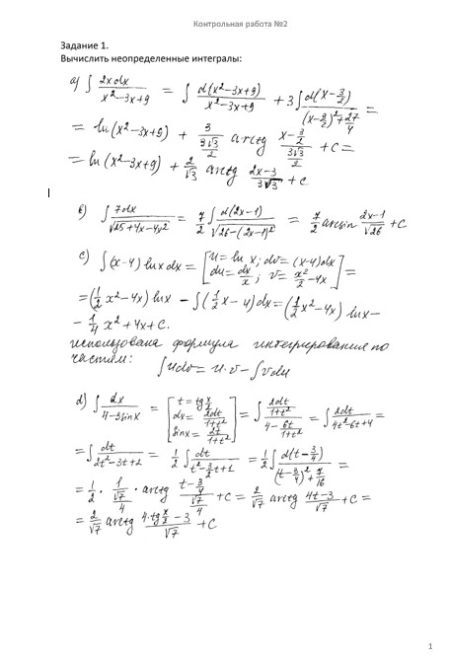 Контрольная работа №2
Задание 1.
Вычислить неопределенные интегралы:
a) ∫ 2xdx/(x²-3x+9) = ∫ d(x²-3x+9)/(x²-3x+9) + 3∫ d(x-3/2)/((x-3/2)²+27/4) =
= ln(x²-3x+9) + 3/(3√3/2) arctg (x-3/2)/(3√3/2) + c =
= ln(x²-3x+9) + 2/√3 arctg (2x-3)/(3√3) + c
b) ∫ 7dx/√(25+4x-4x²) = 7/2 ∫ d(2x-1)/√(26-(2x-1)²) = 7/2 arcsin (2x-1)/√26 + c
c) ∫(x-4) lnx dx = [u = ln x; dv = (x-4)dx
du = dx/x; v = x²/2-4x] =
= (1/2 x²-4x) lnx - ∫(1/2 x-4)dx = (1/2 x²-4x) lnx -
- 1/4 x² + 4x + c.
использована формула интегрирования по
частям:
∫udv = u·v - ∫vdu
d) ∫ dx/(4-3sinx) = [t = tg x/2
dx = 2dt/(1+t²)
sinx = 2t/(1+t²)] = ∫ (2dt/(1+t²))/(4 - 6t/(1+t²)) = ∫ 2dt/(4t²-6t+4) =
= ∫ dt/(2t²-3t+2) = 1/2 ∫ dt/(t²-3/2t+1) = 1/2 ∫ d(t-3/4)/((t-3/4)²+7/16) =
= 1/2 · 1/(√7/4) · arctg (t-3/4)/(√7/4) + c = 2/√7 arctg (4t-3)/√7 + c =
= 2/√7 arctg (4·tg x/2 - 3)/√7 + c
1